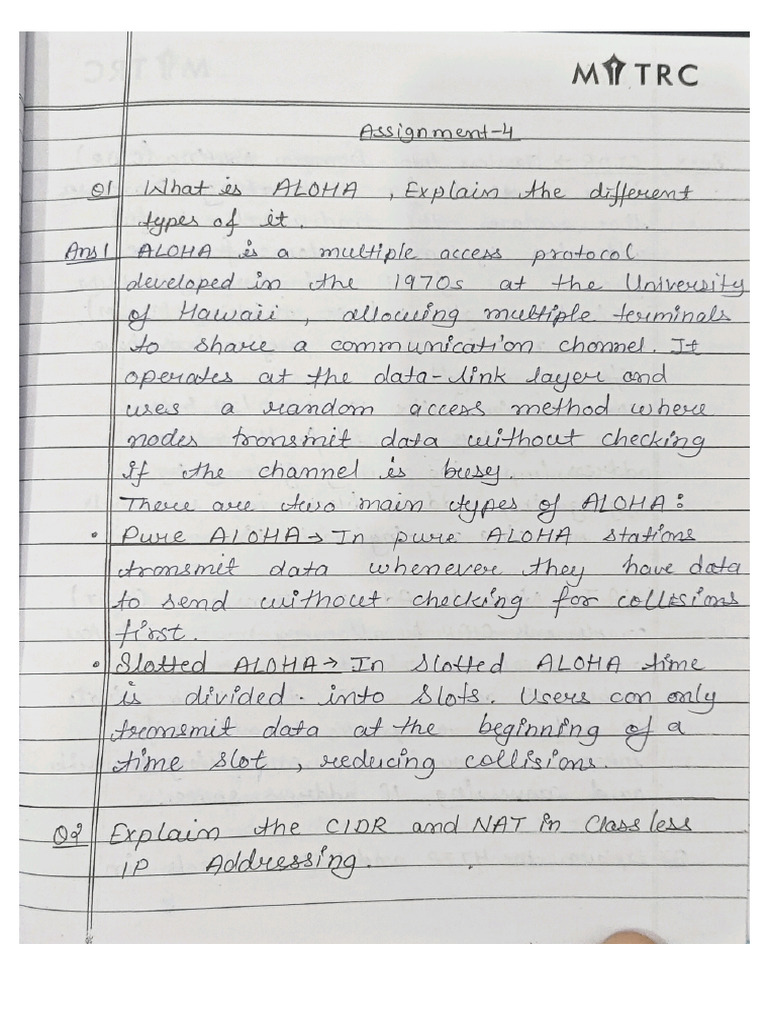 MITRC
Assignment-4
Q1 What is ALOHA , Explain the different
types of it .
Ans1 ALOHA is a multiple access protocol
developed in the 1970s at the University
of Hawaii , allowing multiple terminals
to share a communication channel. It
operates at the data-link layer and
uses a random access method where
nodes transmit data without checking
if the channel is busy.
There are two main types of ALOHA :
• Pure ALOHA → In pure ALOHA stations
transmit data whenever they have data
to send without checking for collisions
first.
• Slotted ALOHA → In slotted ALOHA time
is divided into slots. Users can only
transmit data at the beginning of a
time slot , reducing collisions.
Q2 Explain the CIDR and NAT in Classless
IP Addressing.